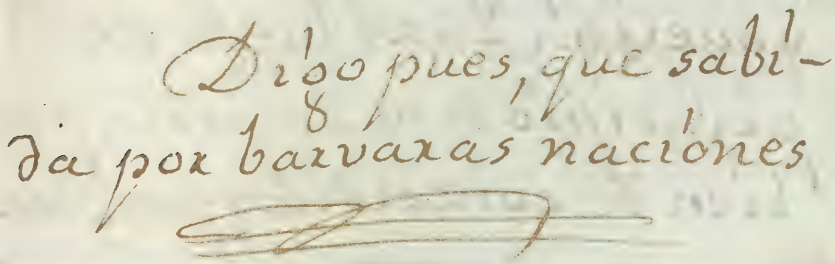 Digo pues, que sabi-
da por barvaras naciones